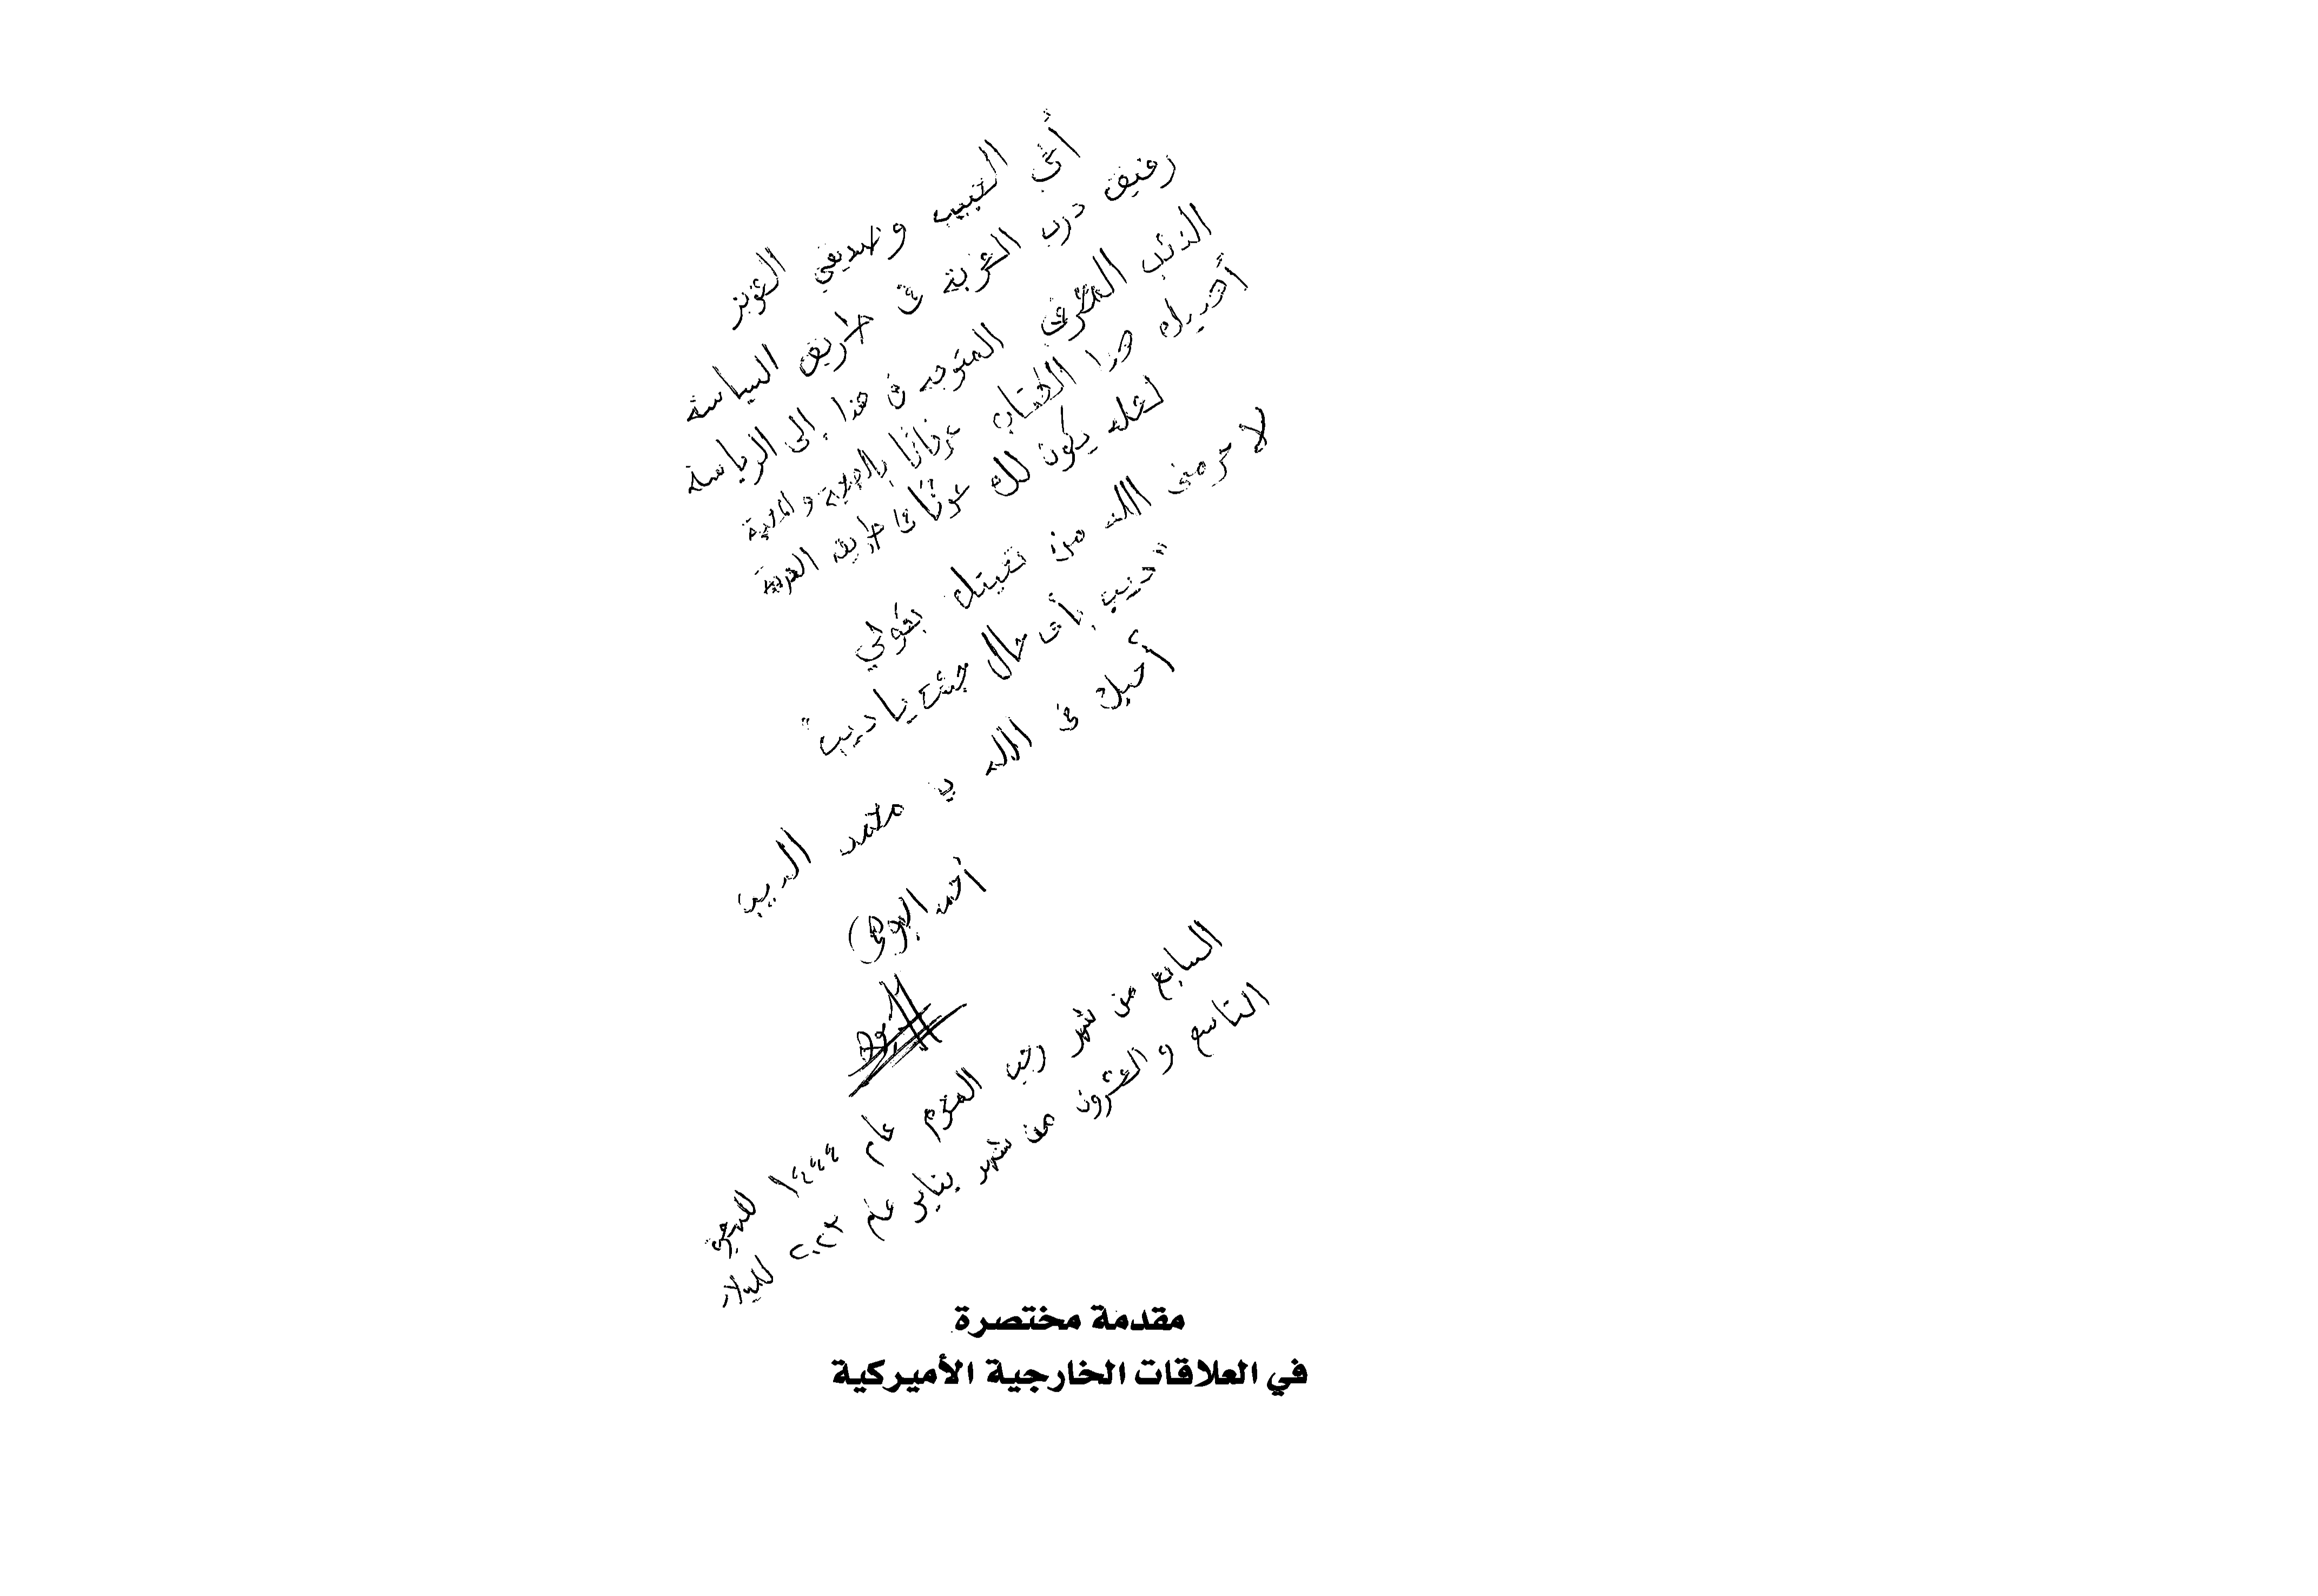 أخي الحبيب وصديقي العزيز
رفيق درب الغربة في طريق السياسة
الذئب المتوجه في هذا إلى الرئاسة
أهديك هذا الكتاب عرفانًا بالصحبة والمحبة
لعله يكون لك عونًا في طريق الغربة
لا حرمني الله من تحيتك بقولي
"حبيب بأي حال جئت يا ديب"
أحبك في الله يا محمد الديب
أحمد
السابع من شهر رجب المحرم عام ١٤٤٤ للهجرة
التاسع والعشرون من شهر يناير عام ٢٠٢٣ للميلاد
مقدمة مختصرة
في العلاقات الخارجية الأميركية